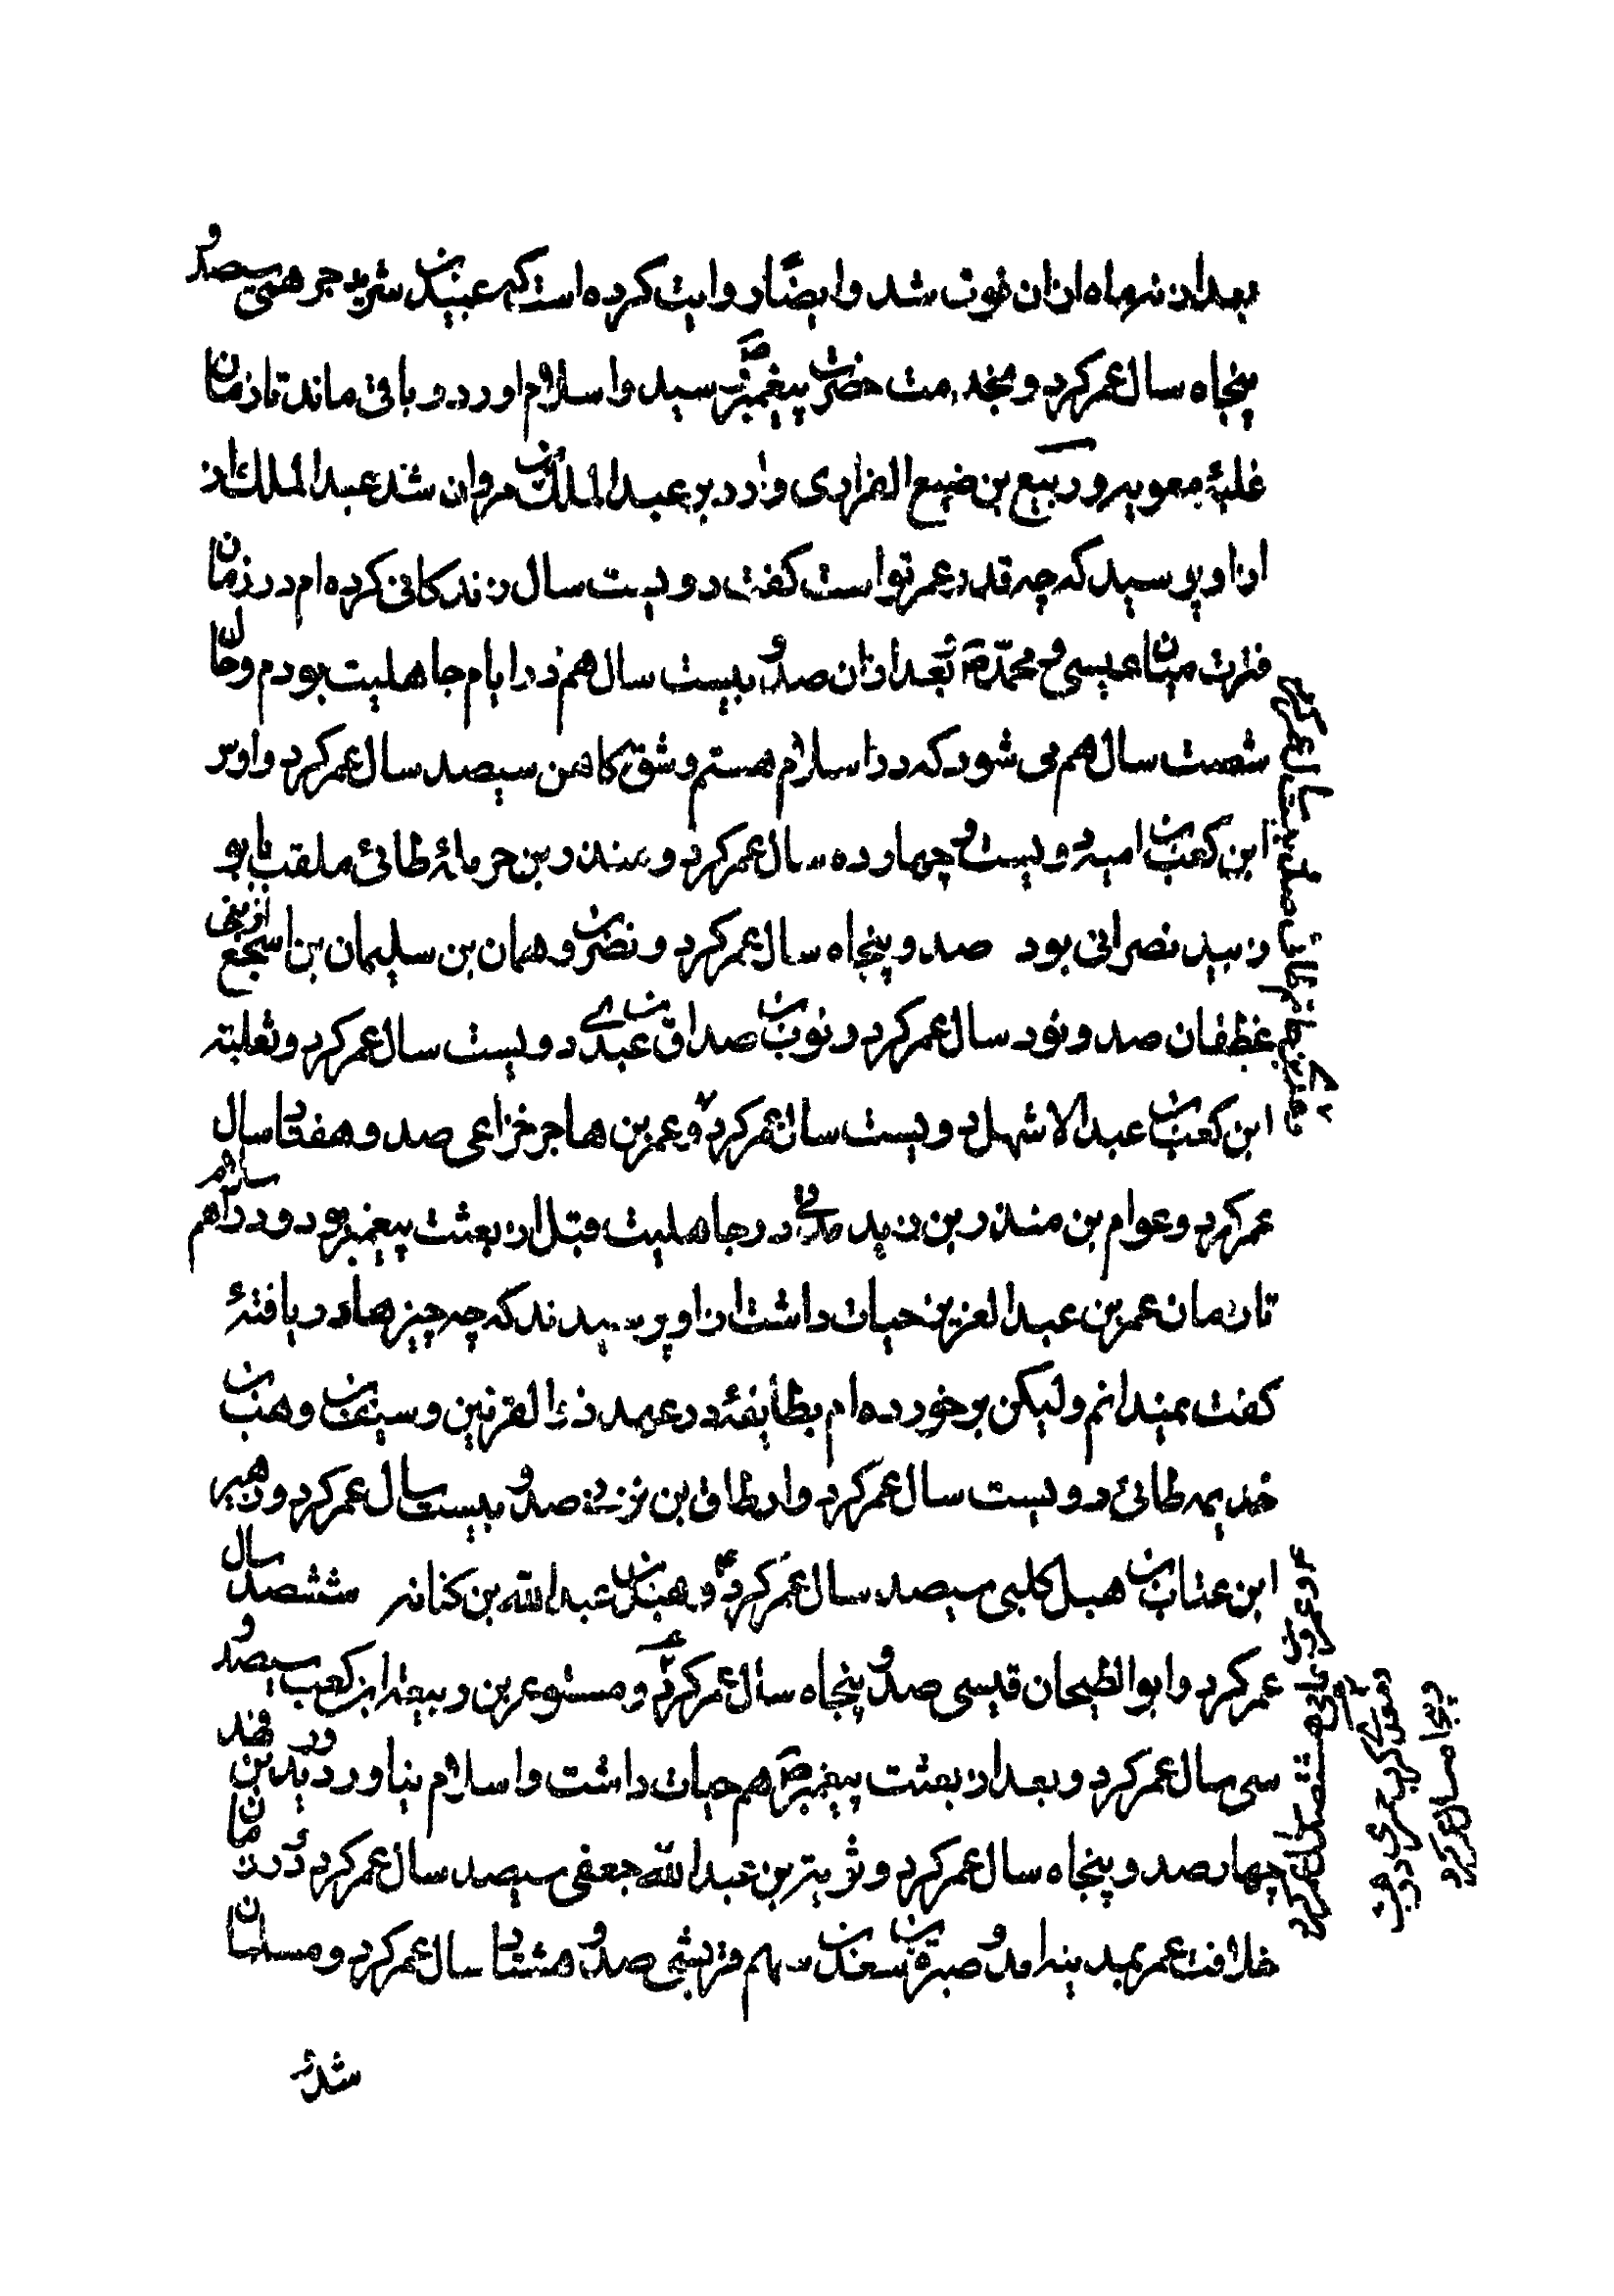 بعد از نه ماه از ان فوت شد و ایضًا روایت کرده است که عبید بن شرید جرهمی سیصد و
پنجاه سال عمر کرد و بخدمت حضرت پیغمبر ص رسید و اسلام اورد و باقی ماند تا زمان
غلبهٔ معویه و ربیع بن ضبع الفزاری وارد بر عبد الملک بن مروان شد عبد الملک از
از او پرسید که چه قدر عمر تو است کفت دویست سال زندکانی کرده ام در زمان
فترت میان عیسی و محمّد ص بعد از ان صد و بیست سال هم در ایام جاهلیت بودم و حال
شصت سال هم می شود که در اسلام هستم و شق کاهن سیصد سال عمر کرد و اوس
ابن کعب بن امیه دویست و چهارده سال عمر کرد و منذر بن حرملهٔ طائی ملقب بابو
زبید نصرانی بود صد و پنجاه سال عمر کرد و نضر بن دهمان بن سلیمان بن اشجع از بنی
غطفان صد و نود سال عمر کرد و ثوب بن صداق عبدی دویست سال عمر کرد و ثعلبة
ابن کعب بن عبد الاشهل دویست سال عمر کرد و عمر بن هاجر خزاعی صد و هفتاد سال
عمر کرد و عوام بن منذر بن زید در جاهلیت قبل از بعثت پیغمبر بود و در اسلام هم
تا زمان عمر بن عبد العزیز حیات داشت از او پرسیدند که چه چیزها دریافتهٔ
کفت نمیدانم ولیکن برخورده ام بطایفهٔ در عهد ذی القرنین و سیف بن وهب بن
خذیمه طائی دویست سال عمر کرد و ارطاة بن صد و بیست سال عمر کرد و زهیر
ابن عتاب بن هبل کلبی سیصد سال عمر کرد و هبل بن عبد الله بن کنانه ششصد سال
عمر کرد و ابو الطحان قیسی صد و پنجاه سال عمر کرد و مستوعر بن ربیعة ابن کعب سیصد و
سی سال عمر کرد و بعد از بعثت پیغمبر ص هم حیات داشت و اسلام نیاورد و درید بن نهد
چهار صد و پنجاه سال عمر کرد و ثویة بن عبد الله جعفی سیصد سال عمر کرد در زمان
خلافت عمر بمدینه امد و صبرة بن سعد بن سهم قریشی صد و هشتاد سال عمر کرد و مسلمان
شده